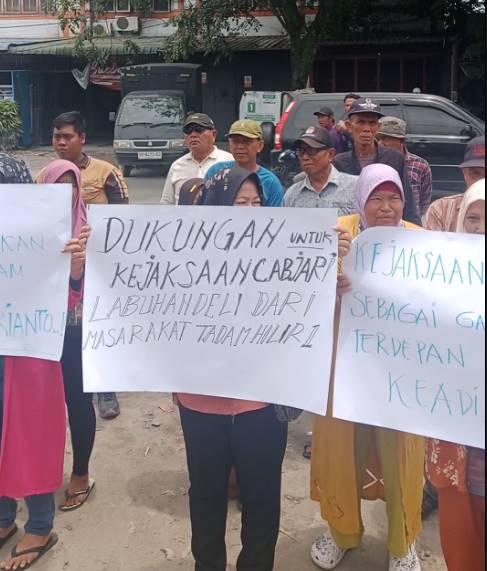 KAN
AM
RIANTO..!
DUKUNGAN UNTUK
KEJAKSAAN CABJARI
LABUHAN DELI DARI
MASARAKAT TADAM HILIR 1
KEJAKSAAN
SEBAGAI GA
TERDEPAN
KEADI